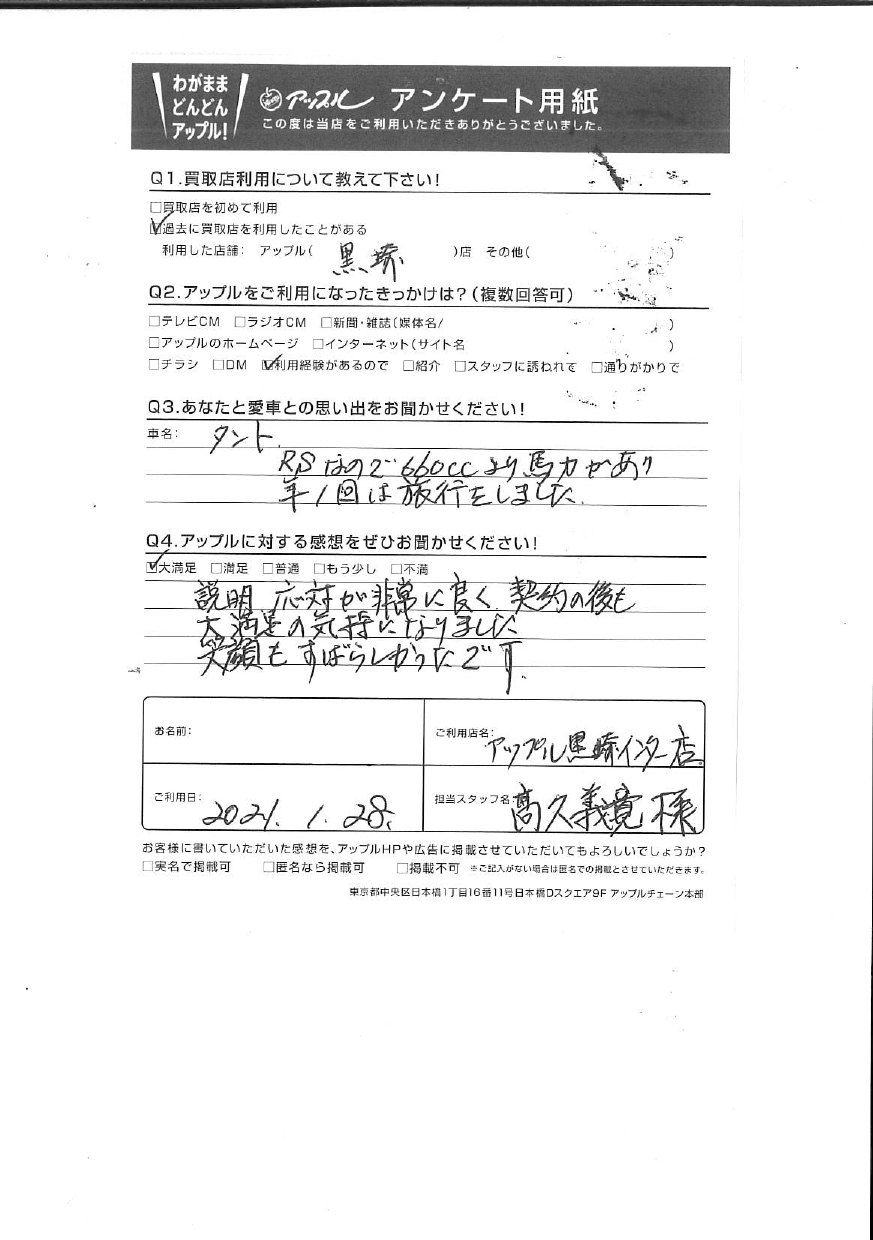 わがまま
どんどん
アップル!
アップル アンケート用紙
この度は当店をご利用いただきありがとうございました。
Q1.買取店利用について教えて下さい!
□買取店を初めて利用
☑過去に買取店を利用したことがある
利用した店舗: アップル( 黒埼 )店 その他( )
Q2.アップルをご利用になったきっかけは?(複数回答可)
□テレビCM □ラジオCM □新聞・雑誌(媒体名/ )
□アップルのホームページ □インターネット(サイト名 )
□チラシ □DM ☑利用経験があるので □紹介 □スタッフに誘われて □通りがかりで
Q3.あなたと愛車との思い出をお聞かせください!
車名: タント.
RSなので660ccより馬力があり
年1回は旅行をしました.
Q4.アップルに対する感想をぜひお聞かせください!
☑大満足 □満足 □普通 □もう少し □不満
説明 応対が非常に良く 契約の後も
大満足の気持になりました
笑顔もすばらしかったです.
お名前:
ご利用店名: アップル黒埼インター店.
ご利用日: 2021. 1. 28.
担当スタッフ名: 髙久義寛 様
お客様に書いていただいた感想を、アップルHPや広告に掲載させていただいてもよろしいでしょうか?
□実名で掲載可 □匿名なら掲載可 □掲載不可 ※ご記入がない場合は匿名での掲載とさせていただきます。
東京都中央区日本橋1丁目16番11号日本橋Dスクエア9F アップルチェーン本部